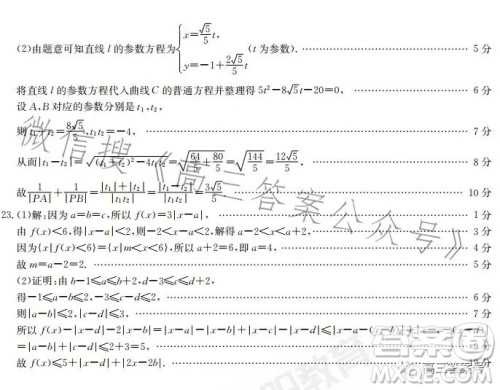 (2)由题意可知直线 l 的参数方程为{x=√5/5 t, y=-1+2√5/5 t (t 为参数). 5分
将直线 l 的参数方程代入曲线 C 的普通方程并整理得 5t²-8√5t-20=0, 6分
设 A,B 对应的参数分别是 t₁,t₂,
则 t₁+t₂=8√5/5,t₁t₂=-4, 7分
从而|t₁-t₂|=√((t₁+t₂)²-4t₁t₂)=√(64/5+80/5)=√(144/5)=12√5/5, 8分
故 1/|PA|+1/|PB|=(|t₁|+|t₂|)/(|t₁t₂|)=|t₁-t₂|/|t₁t₂|=3√5/5. 10分
23.(1)解:因为 a=b=c,所以 f(x)=3|x-a|, 1分
由 f(x)<6,得|x-a|<2,则-2<x-a<2,解得 a-2<x<a+2. 3分
因为{x|f(x)<6}={x|m<x<6},所以 a+2=6,即 a=4, 4分
故 m=a-2=2. 5分
(2)证明:由 b-1≤a≤b+2,d-3≤c≤d+2,
得-1≤a-b≤2,-3≤c-d≤2, 6分
则|a-b|≤2,|c-d|≤3, 7分
所以 f(x)-|x-d|-2|x-b|=|x-a|-|x-b|+|x-c|-|x-d|
=|a-b|+|c-d|≤2+3=5,
故 f(x)≤5+|x-d|+|2x-2b|.
微信搜《高三答案公众号》